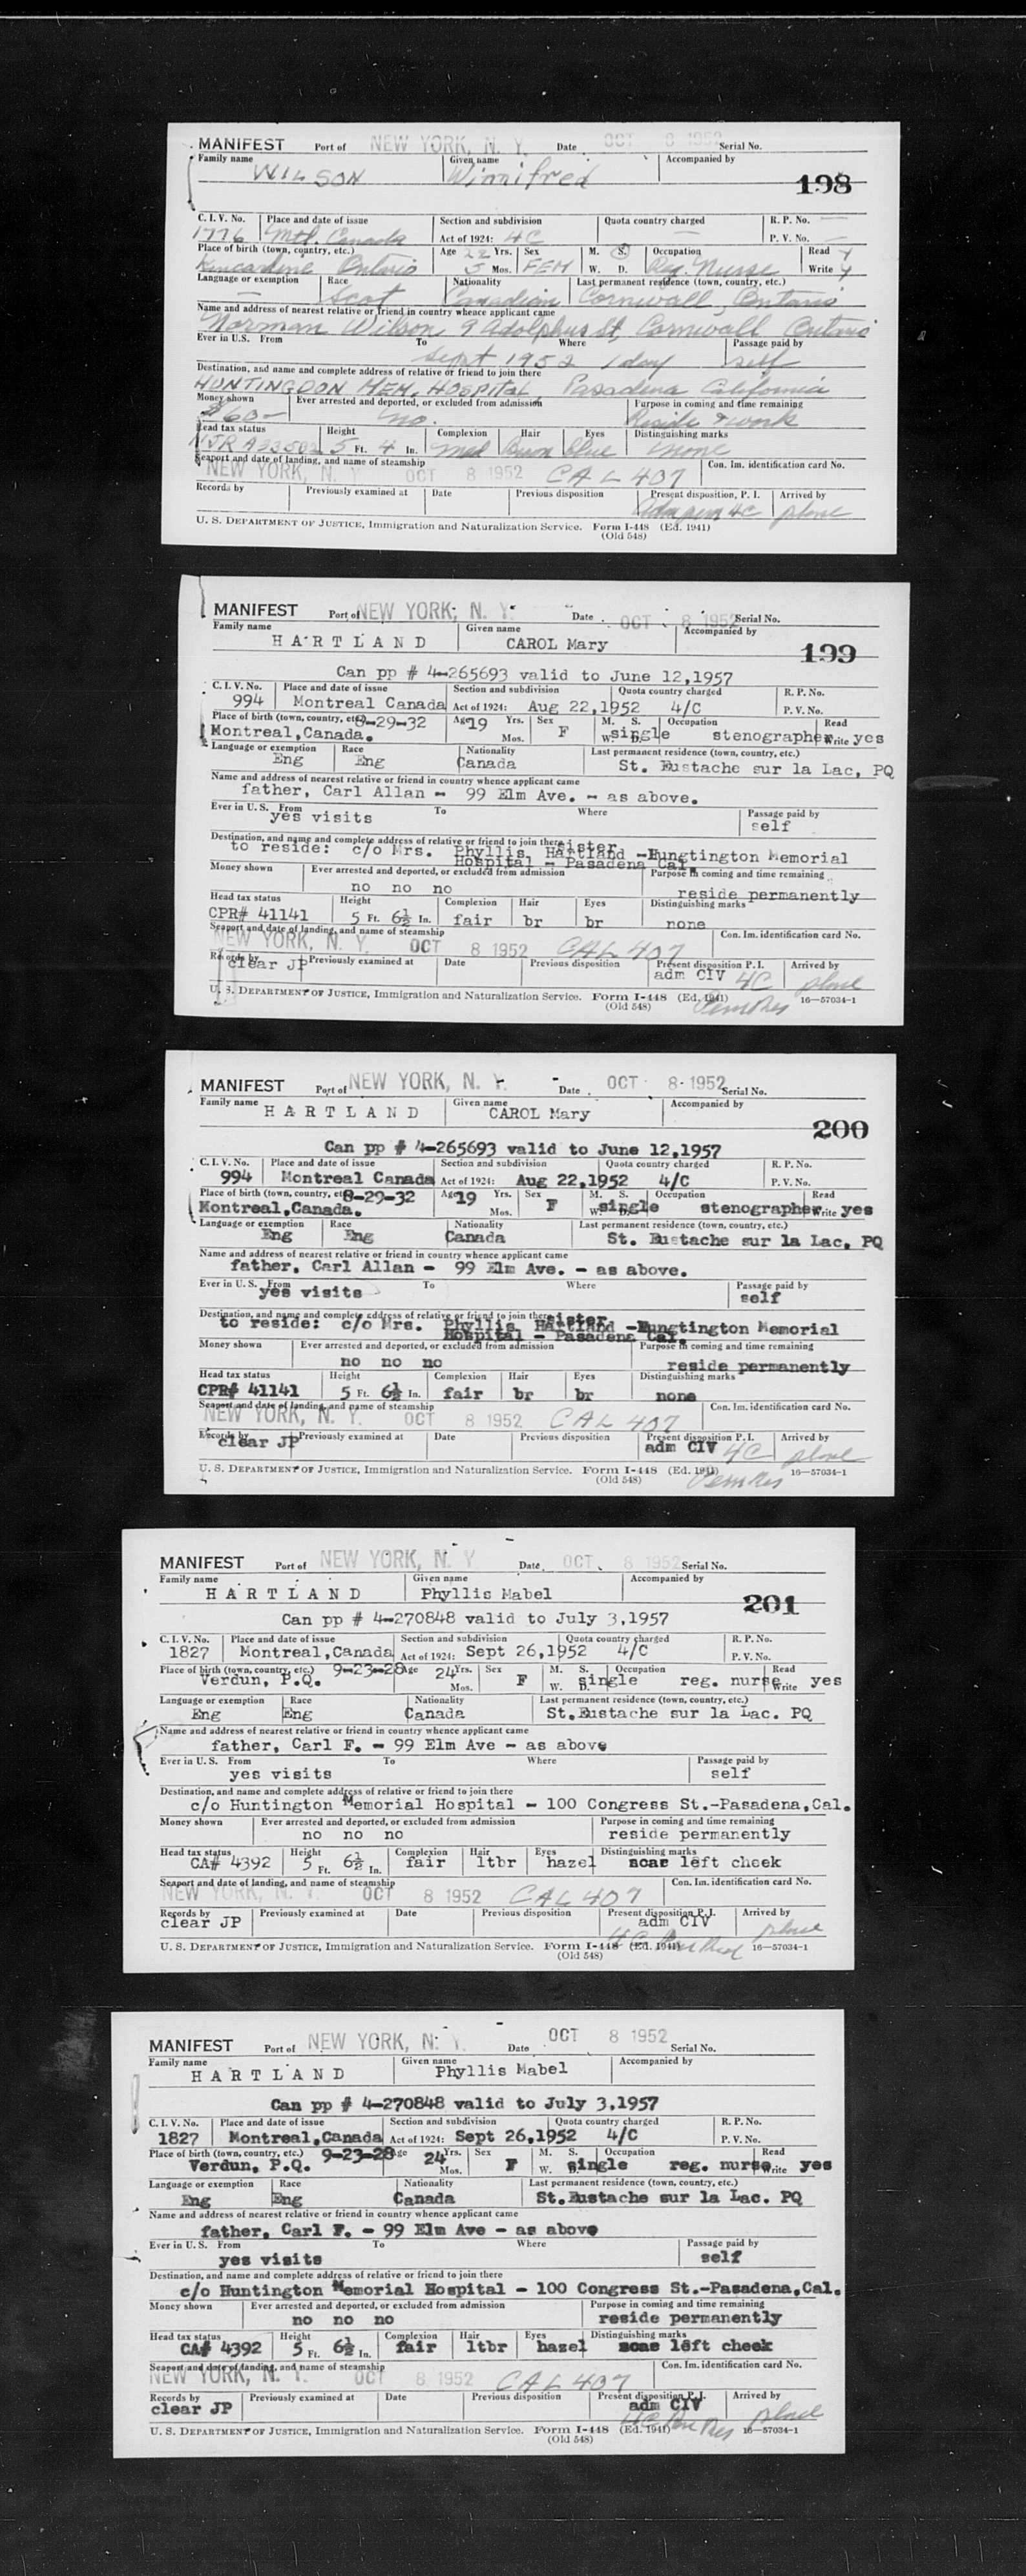 MANIFEST Port of NEW YORK, N. Y. Date OCT 8 1952 Serial No.
Family name Given name Accompanied by
WILSON Winnifred
198
C. I. V. No. Place and date of issue Section and subdivision Quota country charged R. P. No. —
1776 Mtl. Canada Act of 1924: 4C — P. V. No. —
Place of birth (town, country, etc.) Age 22 Yrs. Sex M. S. Occupation Read y
Kincardine Ontario 5 Mos. FEM W. D. Reg. Nurse Write y
Language or exemption Race Nationality Last permanent residence (town, country, etc.)
— Scot Canadian Cornwall, Ontario
Name and address of nearest relative or friend in country whence applicant came
Norman Wilson, 9 Adolphus St, Cornwall Ontario
Ever in U.S. From To Where Passage paid by
Sept 1952 1 day self
Destination, and name and complete address of relative or friend to join there
HUNTINGDON MEM. HOSPITAL, Pasadena California
Money shown Ever arrested and deported, or excluded from admission Purpose in coming and time remaining
$60— no. Reside & work
Head tax status Height Complexion Hair Eyes Distinguishing marks
5 Ft. 4 In. Med Brown blue none
Seaport and date of landing, and name of steamship Con. Im. identification card No.
NEW YORK, N. Y. OCT 8 1952 CAL 407
Records by Previously examined at Date Previous disposition Present disposition, P. I. Arrived by
4C plane
U. S. DEPARTMENT OF JUSTICE, Immigration and Naturalization Service. Form I-448 (Ed. 1941)
(Old 548)
MANIFEST Port of NEW YORK, N. Y. Date OCT 8 1952 Serial No.
Family name Given name Accompanied by
HARTLAND CAROL Mary
199
Can pp # 4-265693 valid to June 12,1957
C. I. V. No. Place and date of issue Section and subdivision Quota country charged R. P. No.
994 Montreal Canada Act of 1924: Aug 22,1952 4/C P. V. No.
Place of birth (town, country, etc.) 8-29-32 Age 19 Yrs. Sex M. S. Occupation Read
Montreal,Canada. Mos. F W. D. single stenographer Write yes
Language or exemption Race Nationality Last permanent residence (town, country, etc.)
Eng Eng Canada St. Eustache sur la Lac, PQ
Name and address of nearest relative or friend in country whence applicant came
father, Carl Allan - 99 Elm Ave. - as above.
Ever in U. S. From To Where Passage paid by
yes visits self
Destination, and name and complete address of relative or friend to join there sister
to reside: c/o Mrs. Phyllis Hartland -Hungtington Memorial
Hospital - Pasadena Cal.
Money shown Ever arrested and deported, or excluded from admission Purpose in coming and time remaining
no no no reside permanently
Head tax status Height Complexion Hair Eyes Distinguishing marks
CPR# 41141 5 Ft. 6½ In. fair br br none
Seaport and date of landing, and name of steamship Con. Im. identification card No.
NEW YORK, N. Y. OCT 8 1952 CAL 407
Records by Previously examined at Date Previous disposition Present disposition P. I. Arrived by
clear JP adm CIV 4C plane
U. S. DEPARTMENT OF JUSTICE, Immigration and Naturalization Service. Form I-448 (Ed. 1941) 16—57034-1
(Old 548) Perm Res
MANIFEST Port of NEW YORK, N. Y. Date OCT 8- 1952 Serial No.
Family name Given name Accompanied by
HARTLAND CAROL Mary
200
Can pp # 4-265693 valid to June 12,1957
C. I. V. No. Place and date of issue Section and subdivision Quota country charged R. P. No.
994 Montreal Canada Act of 1924: Aug 22,1952 4/C P. V. No.
Place of birth (town, country, etc.) 8-29-32 Age 19 Yrs. Sex M. S. Occupation Read
Montreal,Canada. Mos. F W. D. single stenographer Write yes
Language or exemption Race Nationality Last permanent residence (town, country, etc.)
Eng Eng Canada St. Eustache sur la Lac, PQ
Name and address of nearest relative or friend in country whence applicant came
father, Carl Allan - 99 Elm Ave. - as above.
Ever in U. S. From To Where Passage paid by
yes visits self
Destination, and name and complete address of relative or friend to join there sister
to reside: c/o Mrs. Phyllis Hartland -Hungtington Memorial
Hospital - Pasadena Cal.
Money shown Ever arrested and deported, or excluded from admission Purpose in coming and time remaining
no no no reside permanently
Head tax status Height Complexion Hair Eyes Distinguishing marks
CPR# 41141 5 Ft. 6½ In. fair br br none
Seaport and date of landing, and name of steamship Con. Im. identification card No.
NEW YORK, N. Y. OCT 8 1952 CAL 407
Records by Previously examined at Date Previous disposition Present disposition P. I. Arrived by
clear JP adm CIV 4C plane
U. S. DEPARTMENT OF JUSTICE, Immigration and Naturalization Service. Form I-448 (Ed. 1941) 16—57034-1
(Old 548) Perm Res
MANIFEST Port of NEW YORK, N. Y. Date OCT 8 1952 Serial No.
Family name Given name Accompanied by
HARTLAND Phyllis Mabel
201
Can pp # 4-270848 valid to July 3,1957
C. I. V. No. Place and date of issue Section and subdivision Quota country charged R. P. No.
1827 Montreal,Canada Act of 1924: Sept 26,1952 4/C P. V. No.
Place of birth (town, country, etc.) 9-23-28 Age 24 Yrs. Sex M. S. Occupation Read
Verdun, P.Q. Mos. F W. D. single reg. nurse Write yes
Language or exemption Race Nationality Last permanent residence (town, country, etc.)
Eng Eng Canada St.Eustache sur la Lac. PQ
Name and address of nearest relative or friend in country whence applicant came
father, Carl F. - 99 Elm Ave - as above
Ever in U. S. From To Where Passage paid by
yes visits self
Destination, and name and complete address of relative or friend to join there
c/o Huntington Memorial Hospital - 100 Congress St.-Pasadena,Cal.
Money shown Ever arrested and deported, or excluded from admission Purpose in coming and time remaining
no no no reside permanently
Head tax status Height Complexion Hair Eyes Distinguishing marks
CA# 4392 5 Ft. 6½ In. fair ltbr hazel scar left cheek
Seaport and date of landing, and name of steamship Con. Im. identification card No.
NEW YORK, N. Y. OCT 8 1952 CAL 407
Records by Previously examined at Date Previous disposition Present disposition P. I. Arrived by
clear JP adm CIV plane
U. S. DEPARTMENT OF JUSTICE, Immigration and Naturalization Service. Form I-448 (Ed. 1941) 4C Perm Res 16—57034-1
(Old 548)
MANIFEST Port of NEW YORK, N. Y. Date OCT 8 1952 Serial No.
Family name Given name Accompanied by
HARTLAND Phyllis Mabel
Can pp # 4-270848 valid to July 3,1957
C. I. V. No. Place and date of issue Section and subdivision Quota country charged R. P. No.
1827 Montreal,Canada Act of 1924: Sept 26,1952 4/C P. V. No.
Place of birth (town, country, etc.) 9-23-28 Age 24 Yrs. Sex M. S. Occupation Read
Verdun, P.Q. Mos. F W. D. single reg. nurse Write yes
Language or exemption Race Nationality Last permanent residence (town, country, etc.)
Eng Eng Canada St.Eustache sur la Lac. PQ
Name and address of nearest relative or friend in country whence applicant came
father, Carl F. - 99 Elm Ave - as above
Ever in U. S. From To Where Passage paid by
yes visits self
Destination, and name and complete address of relative or friend to join there
c/o Huntington Memorial Hospital - 100 Congress St.-Pasadena,Cal.
Money shown Ever arrested and deported, or excluded from admission Purpose in coming and time remaining
no no no reside permanently
Head tax status Height Complexion Hair Eyes Distinguishing marks
CA# 4392 5 Ft. 6½ In. fair ltbr hazel scar left cheek
Seaport and date of landing, and name of steamship Con. Im. identification card No.
NEW YORK, N. Y. OCT 8 1952 CAL 407
Records by Previously examined at Date Previous disposition Present disposition P. I. Arrived by
clear JP adm CIV plane
U. S. DEPARTMENT OF JUSTICE, Immigration and Naturalization Service. Form I-448 (Ed. 1941) 4C Perm Res 16—57034-1
(Old 548)